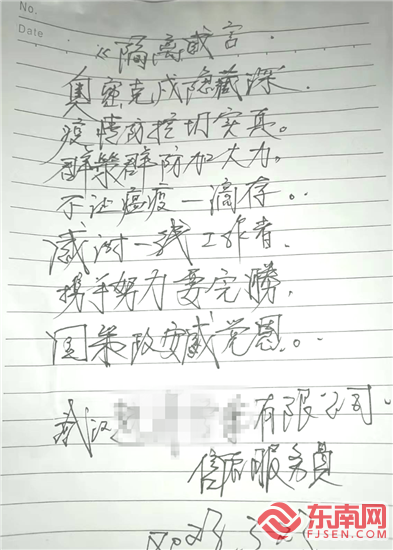 No.
Date
《隔离感言.
奥密克戎隐藏深.
疫情防控切实真。
群策群防加大力。
不让瘟疫一滴存。
感谢一线工作者.
携手努力要完勝.
国策政安感党恩。
武汉 有限公司.
信后服务员
东南网
FJSEN.COM